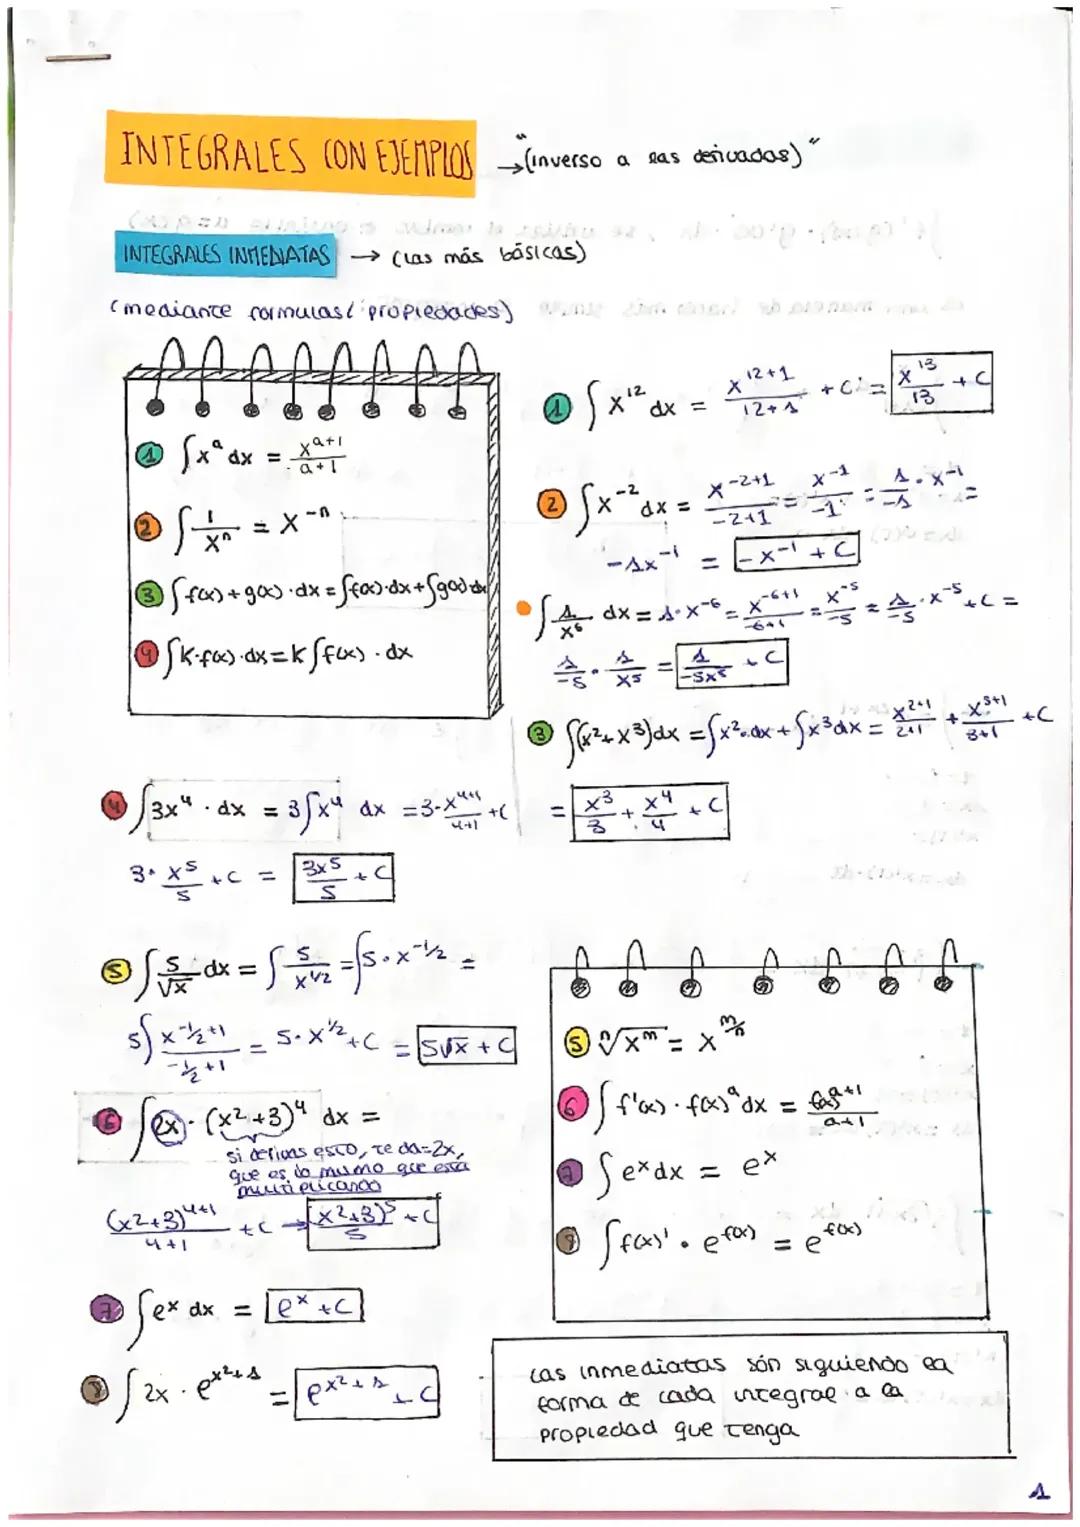 INTEGRALES CON EJEMPLOS → "(inverso a las derivadas)"
INTEGRALES INMEDIATAS → (las más básicas)
(mediante formulas/propiedades)
1 ∫x^a dx = x^(a+1)/(a+1)
2 ∫1/x^n = x^(-n)
3 ∫f(x)+g(x)·dx = ∫f(x)·dx+∫g(x)dx
4 ∫K·f(x)·dx=K∫f(x)·dx
1 ∫x^12 dx = x^(12+1)/(12+1) + C = x^13/13 + C
2 ∫x^(-2) dx = x^(-2+1)/(-2+1) = x^(-1)/(-1) = 1/(-1)·x^(-1) =
-1x^(-1) = -x^(-1) + C
∫1/x^6 dx = 1·x^(-6) = x^(-6+1)/(-6+1) = x^(-5)/(-5) = 1/(-5)·x^(-5)+C =
1/(-5)·1/x^5 = 1/(-5x^5) + C
3 ∫(x^2+x^3)dx = ∫x^2·dx+∫x^3dx = x^(2+1)/(2+1) + x^(3+1)/(3+1) + C
= x^3/3 + x^4/4 + C
4 ∫3x^4·dx = 3∫x^4 dx = 3·x^(4+1)/(4+1) + C
3·x^5/5 + C = 3x^5/5 + C
5 ∫5/√x dx = ∫5/x^(1/2) = ∫5·x^(-1/2) =
5∫x^(-1/2+1)/(-1/2+1) = 5·x^(1/2)+C = 5√x + C
6 ∫2x·(x^2+3)^4 dx =
si derivas esto, te da=2x,
que es lo mismo que está
multiplicando
(x^2+3)^(4+1)/(4+1) + C → (x^2+3)^5/5 + C
7 ∫e^x dx = e^x + C
8 ∫2x·e^(x^2+1) = e^(x^2+1) + C
5 ⁿ√x^m = x^(m/n)
6 ∫f'(x)·f(x)^a dx = f(x)^(a+1)/(a+1)
7 ∫e^x dx = e^x
8 ∫f(x)'·e^f(x) = e^f(x)
Las inmediatas són siguiendo la
forma de cada integral a la
propiedad que tenga
1